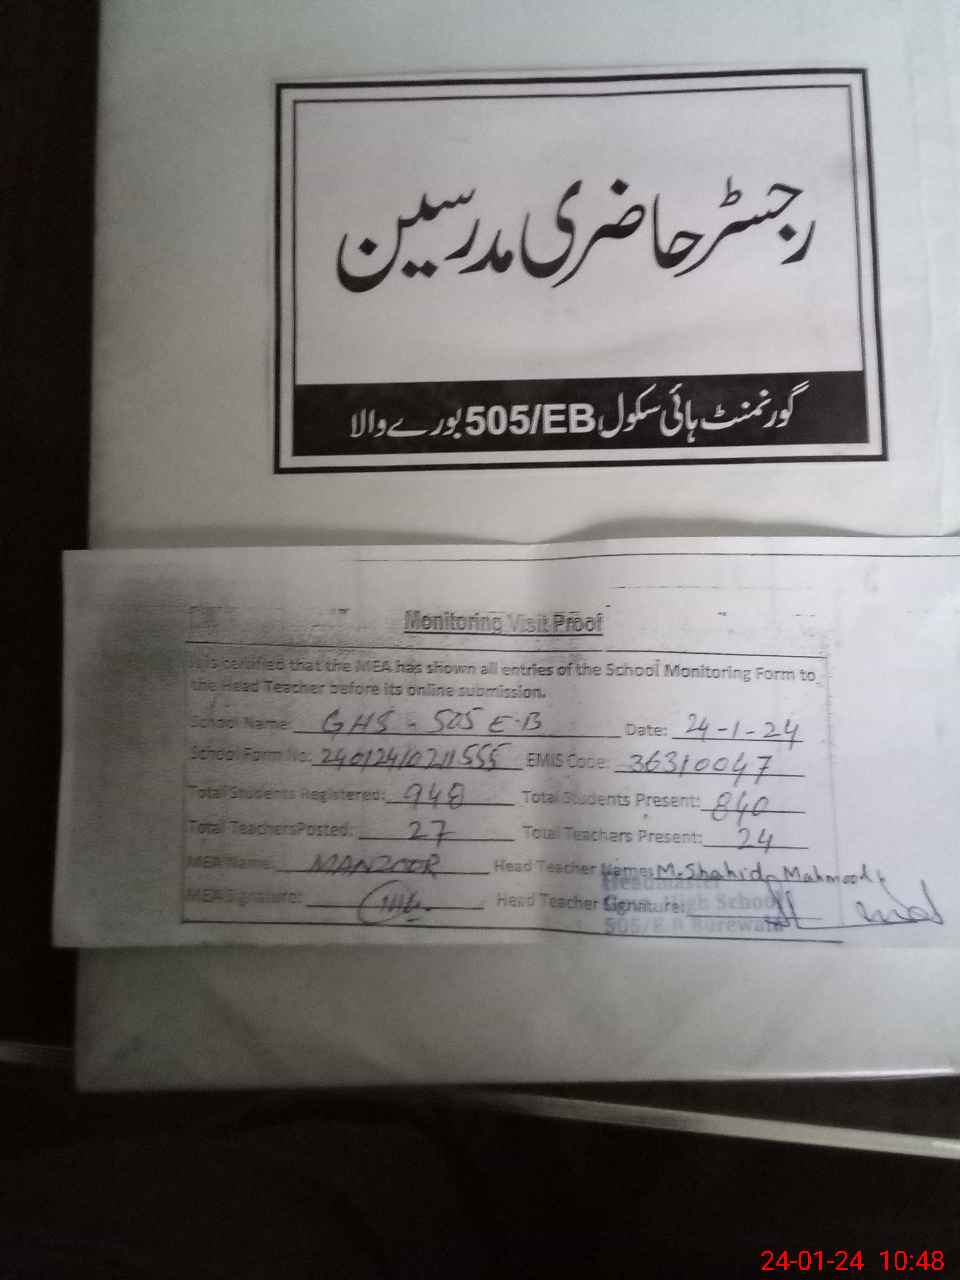 رجسٹر حاضری مدرسین
گورنمنٹ ہائی سکول 505/EB بورے والا
Monitoring Visit Proof
It is certified that the MEA has shown all entries of the School Monitoring Form to
the Head Teacher before its online submission.
School Name: GHS - 505 E-B Date: 24-1-24
School Form No: EMIS Code: 36310047
Total Students Registered: 948 Total Students Present: 840
Total TeachersPosted: 27 Total Teachers Present: 24
MEA Name: MANZOOR Head Teacher Name: M. Shahid Mahmood
MEA Signature: Head Teacher Signature:
Headmaster
High School
505/E B Burewala
24-01-24 10:48